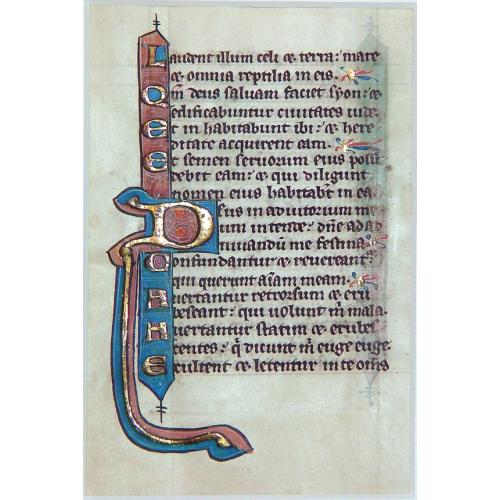 Laudent illum celi ⁊ terra: mare
⁊ omnia reptilia in eis.
Qm̄ deus saluam faciet syon: ⁊
edificabuntur ciuitates iude.
Et in habitabunt ibi: ⁊ here
ditate acquirent eam.
Et semen seruorum eius possi
debit eam: ⁊ qui diligunt
nomen eius habitabt̄ in ea.
Deus in adiutorium me
um intende: dn̄e ad ad
iuuandū me festina.
Confundantur ⁊ reuereant᷑:
qui querunt aīam meam.
Auertantur retrorsum ⁊ eru
bescant: qui uolunt m̄ mala.
Auertantur statim ⁊ erubes
centes: q̄ dicunt m̄ euge euge.
Exultent ⁊ letentur in te om̄s